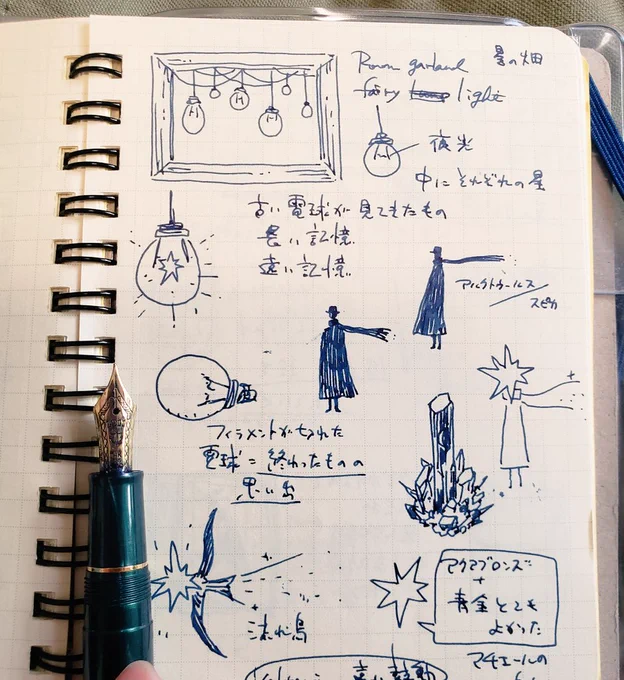 星の畑
Room garland
fairy light
夜光
中にそれぞれの星
古い電球が見てきたもの
長い記憶.
遠い記憶.
アルクトゥールス
スピカ
フィラメントがきれた
電球 = 終わったものの
思い出
流れ鳥
アクアブロンズ
+
青金とても
よかった
マチエールの